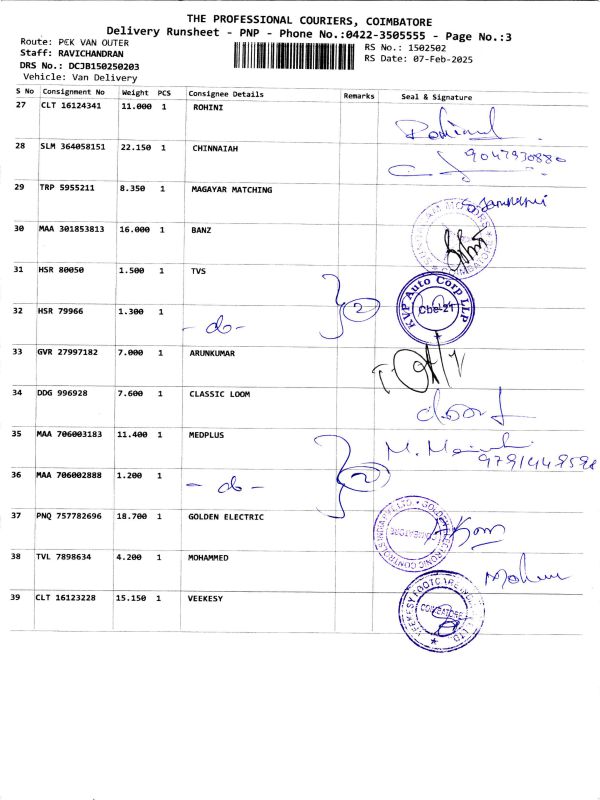 THE PROFESSIONAL COURIERS, COIMBATORE
Delivery Runsheet - PNP - Phone No.:0422-3505555 - Page No.:3
Route: PCK VAN OUTER
RS No.: 1502502
Staff: RAVICHANDRAN
RS Date: 07-Feb-2025
DRS No.: DCJB150250203
Vehicle: Van Delivery
S No Consignment No Weight PCS Consignee Details Remarks Seal & Signature
27 CLT 16124341 11.000 1 ROHINI
28 SLM 364058151 22.150 1 CHINNAIAH 9047930880
29 TRP 5955211 8.350 1 MAGAYAR MATCHING
30 MAA 301853813 16.000 1 BANZ
31 HSR 80050 1.500 1 TVS
KVP Auto Corp LLP Cbe-21
32 HSR 79966 1.300 1 - do - 2
33 GVR 27997182 7.000 1 ARUNKUMAR
34 DDG 996928 7.600 1 CLASSIC LOOM door
35 MAA 706003183 11.400 1 MEDPLUS
36 MAA 706002888 1.200 1 - do - 2
37 PNQ 757782696 18.700 1 GOLDEN ELECTRIC
38 TVL 7898634 4.200 1 MOHAMMED
39 CLT 16123228 15.150 1 VEEKESY